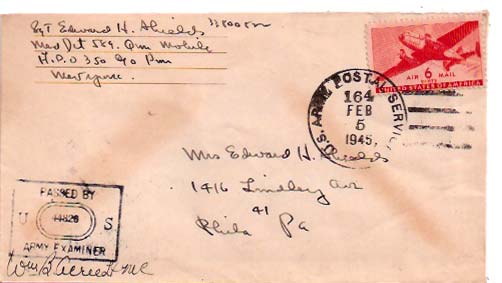 Sgt Edward H. Shields
Med Det 589. Qm Mobile
A.P.O 350 c/o Pm
New York.
AIR 6 MAIL
CENTS
UNITED STATES OF AMERICA
U.S. ARMY POSTAL SERVICE
164
FEB
5
1945
Mrs Edward H. Shields
1416 Lindley Ave
41
Phila Pa
PASSED BY
U S
ARMY EXAMINER